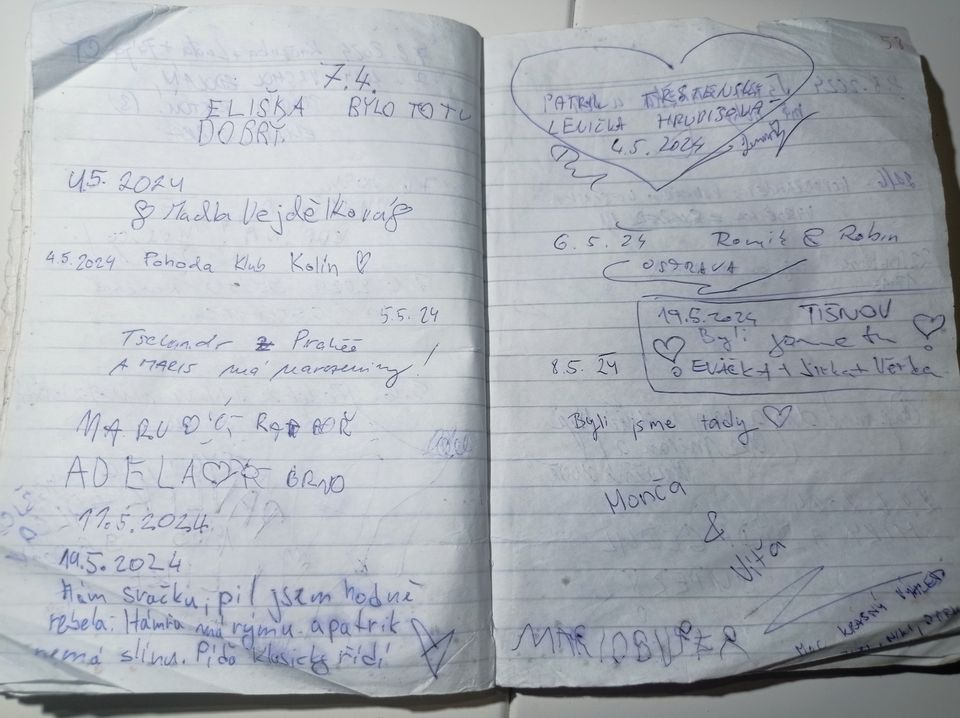 7.4.
ELIŠKA BYLO TO TU
DOBRÝ.
4.5. 2024
Madla Vejdělková
4.5.2024 Pohoda Klub Kolín
5.5. 24
A MARIS má narozeniny!
ADELA BRNO
11.5.2024
19.5.2024
Mám svačku, pil jsem hodně
rebela. Hamřa má rýmu a patrik
nemá slinu. Píďa klasicky řídí
58
PATRIK
LENIČKA
4.5. 2024
6.5. 24 Romik & Robin
OSTRAVA
19.5.2024 TIŠNOV
Byli jsme tu
8.5. 24
EVIČKA + Jirka + Věrka
Byli jsme tady
Monča
&
Víťa